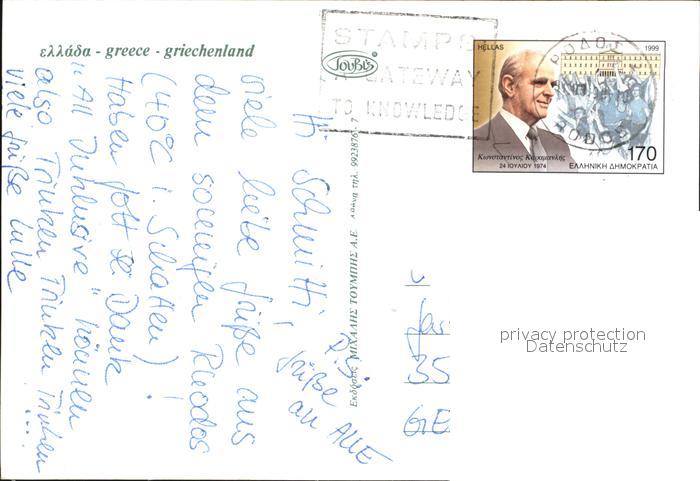 ελλάδα - greece - griechenland
STAMPS
A GATEWAY
TO KNOWLEDGE
TOUBI'S
HELLAS
1999
ΡΟΔΟΣ
ΡΟΔΟΣ
Κωνσταντίνος Καραμανλής
24 ΙΟΥΛΙΟΥ 1974
170
ΕΛΛΗΝΙΚΗ ΔΗΜΟΚΡΑΤΙΑ
Εκδόσεις ΜΙΧΑΛΗΣ ΤΟΥΜΠΗΣ Α.Ε. Αθήνα τηλ. 9923876 - 7
Hi Schmitti,
viele liebe Grüße aus
dem sonnigen Rhodos
(40°C i. Schatten)!
Haben Gott sei Dank
"All Inclusive" können
also Trinken Trinken Trinken...
viele Grüße
P.S.
Grüße
an ALLE
35
GE
privacy protection
Datenschutz